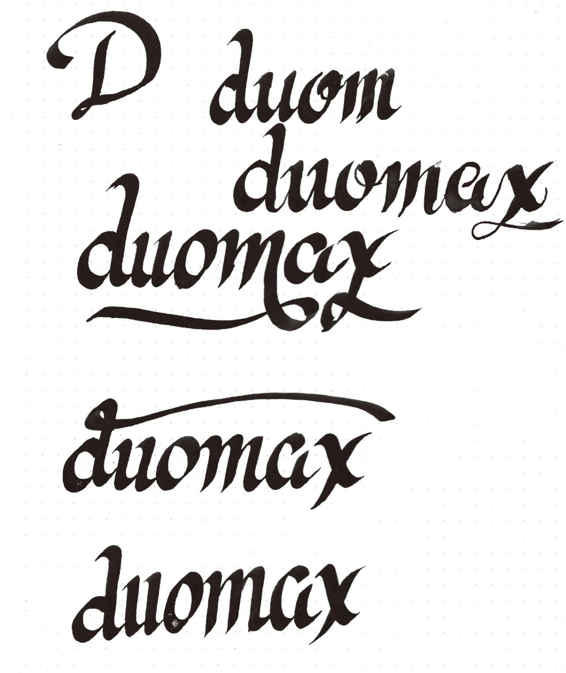 D duom
duomax
duomax
duomax
duomax